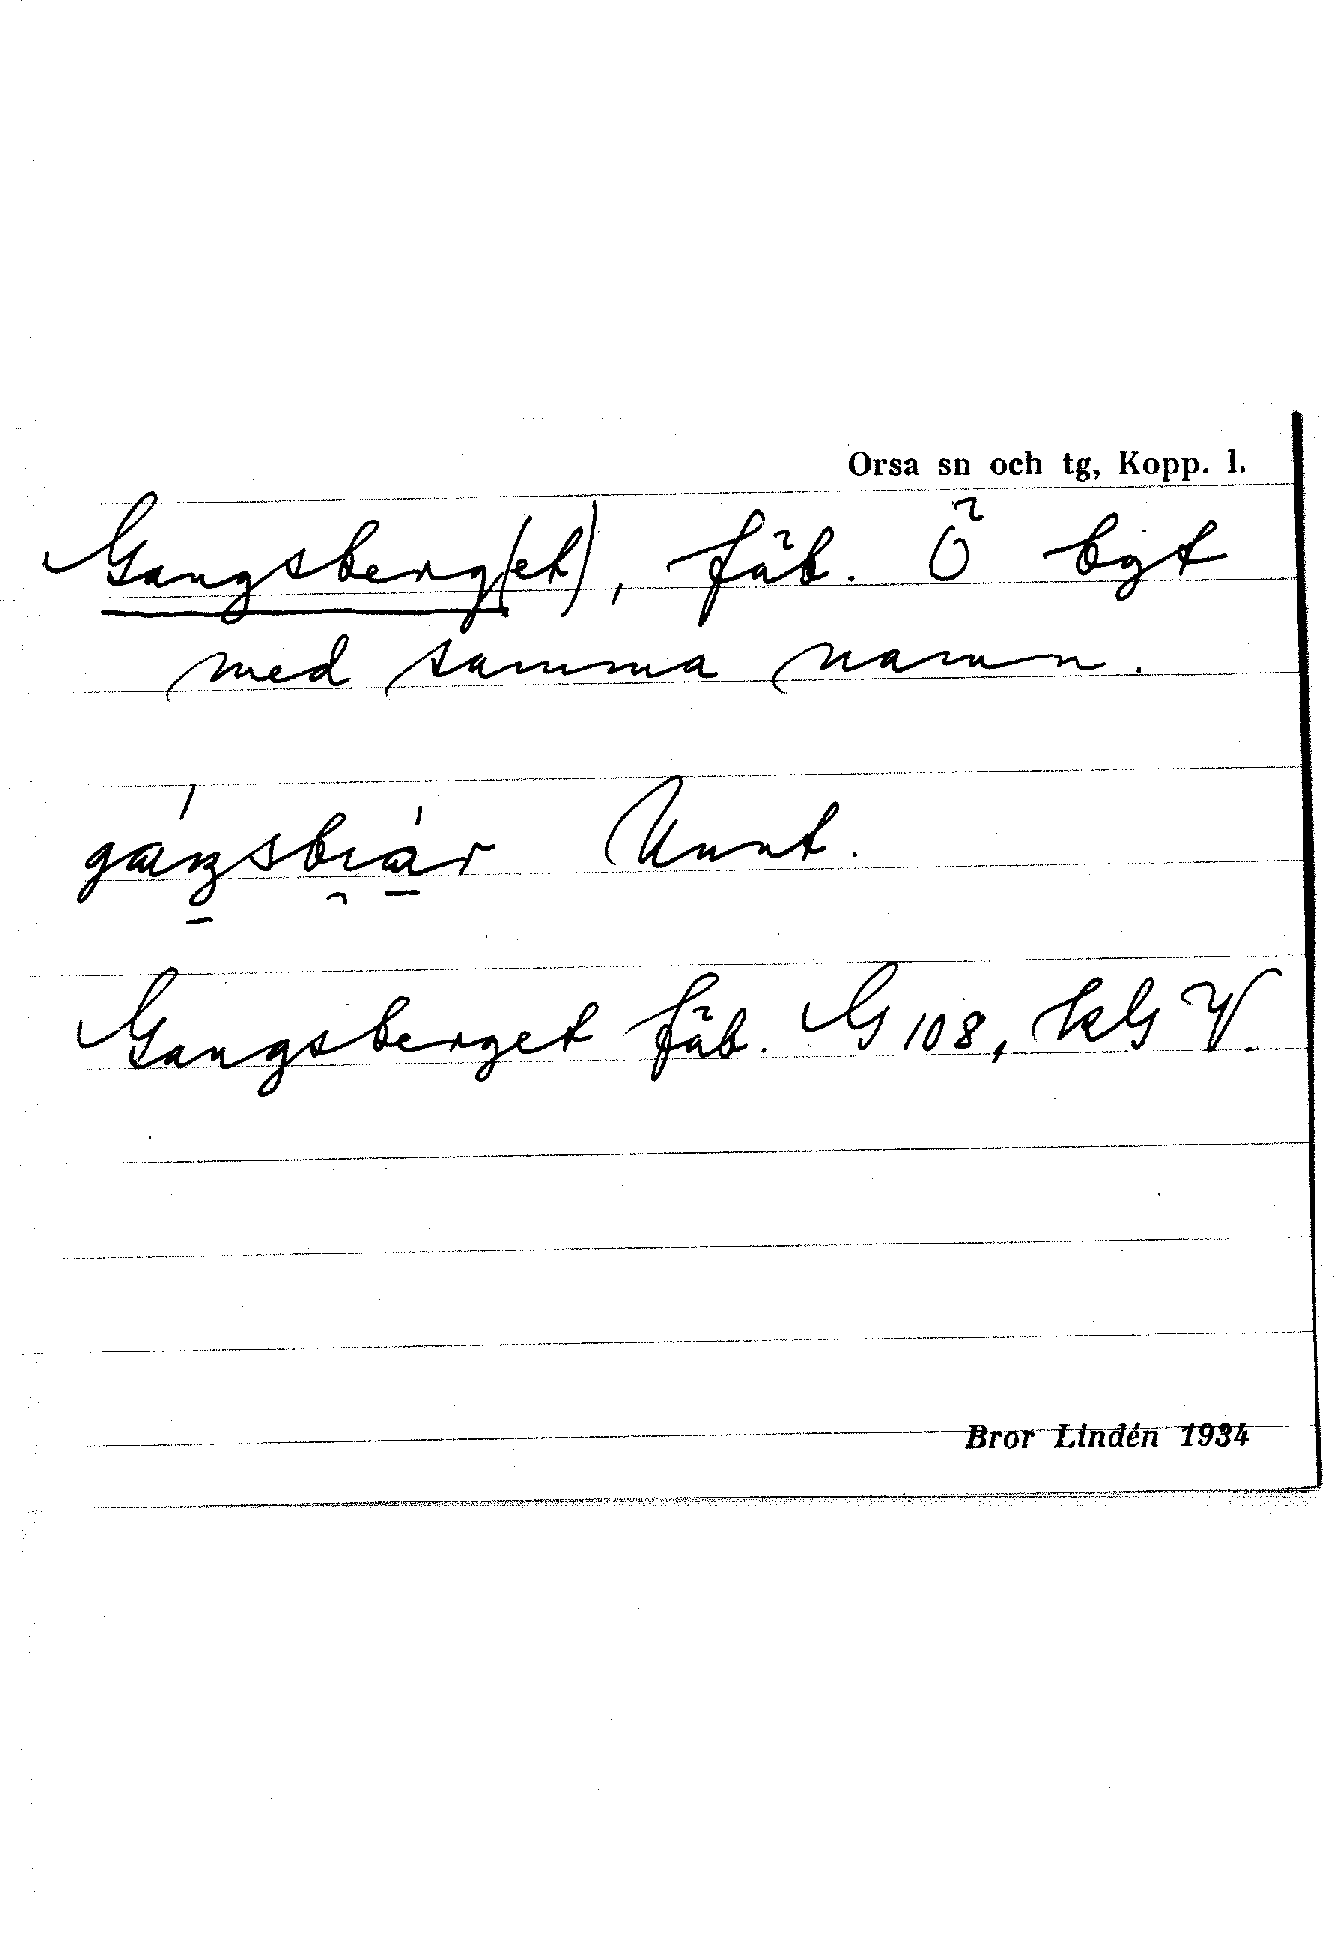 Orsa sn och tg, Kopp. l.
Gangsberg(et), fäb. Ö bgt
med samma namn.
Unnt.
Gangsberget fäb. G 108, kG V.
Bror Lindén 1934